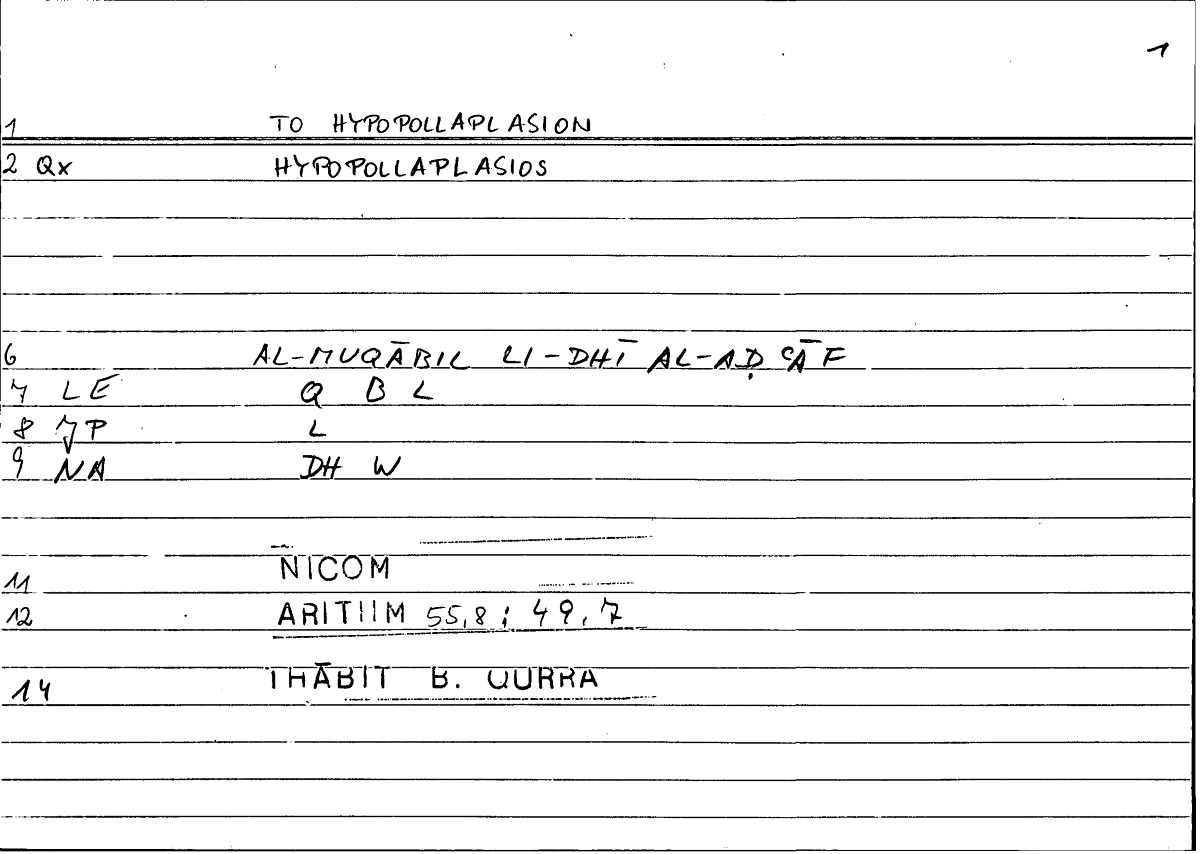 1
1 TO HYPOPOLLAPLASION
2 Qx HYPOPOLLAPLASIOS
6 AL-MUQĀBIL LI-DHĪ AL-AḌʿĀF
7 LE Q B L
8 JP L
9 NA DH W
11 NICOM
12 ARITHM 55,8; 49,7
14 THĀBIT B. QURRA